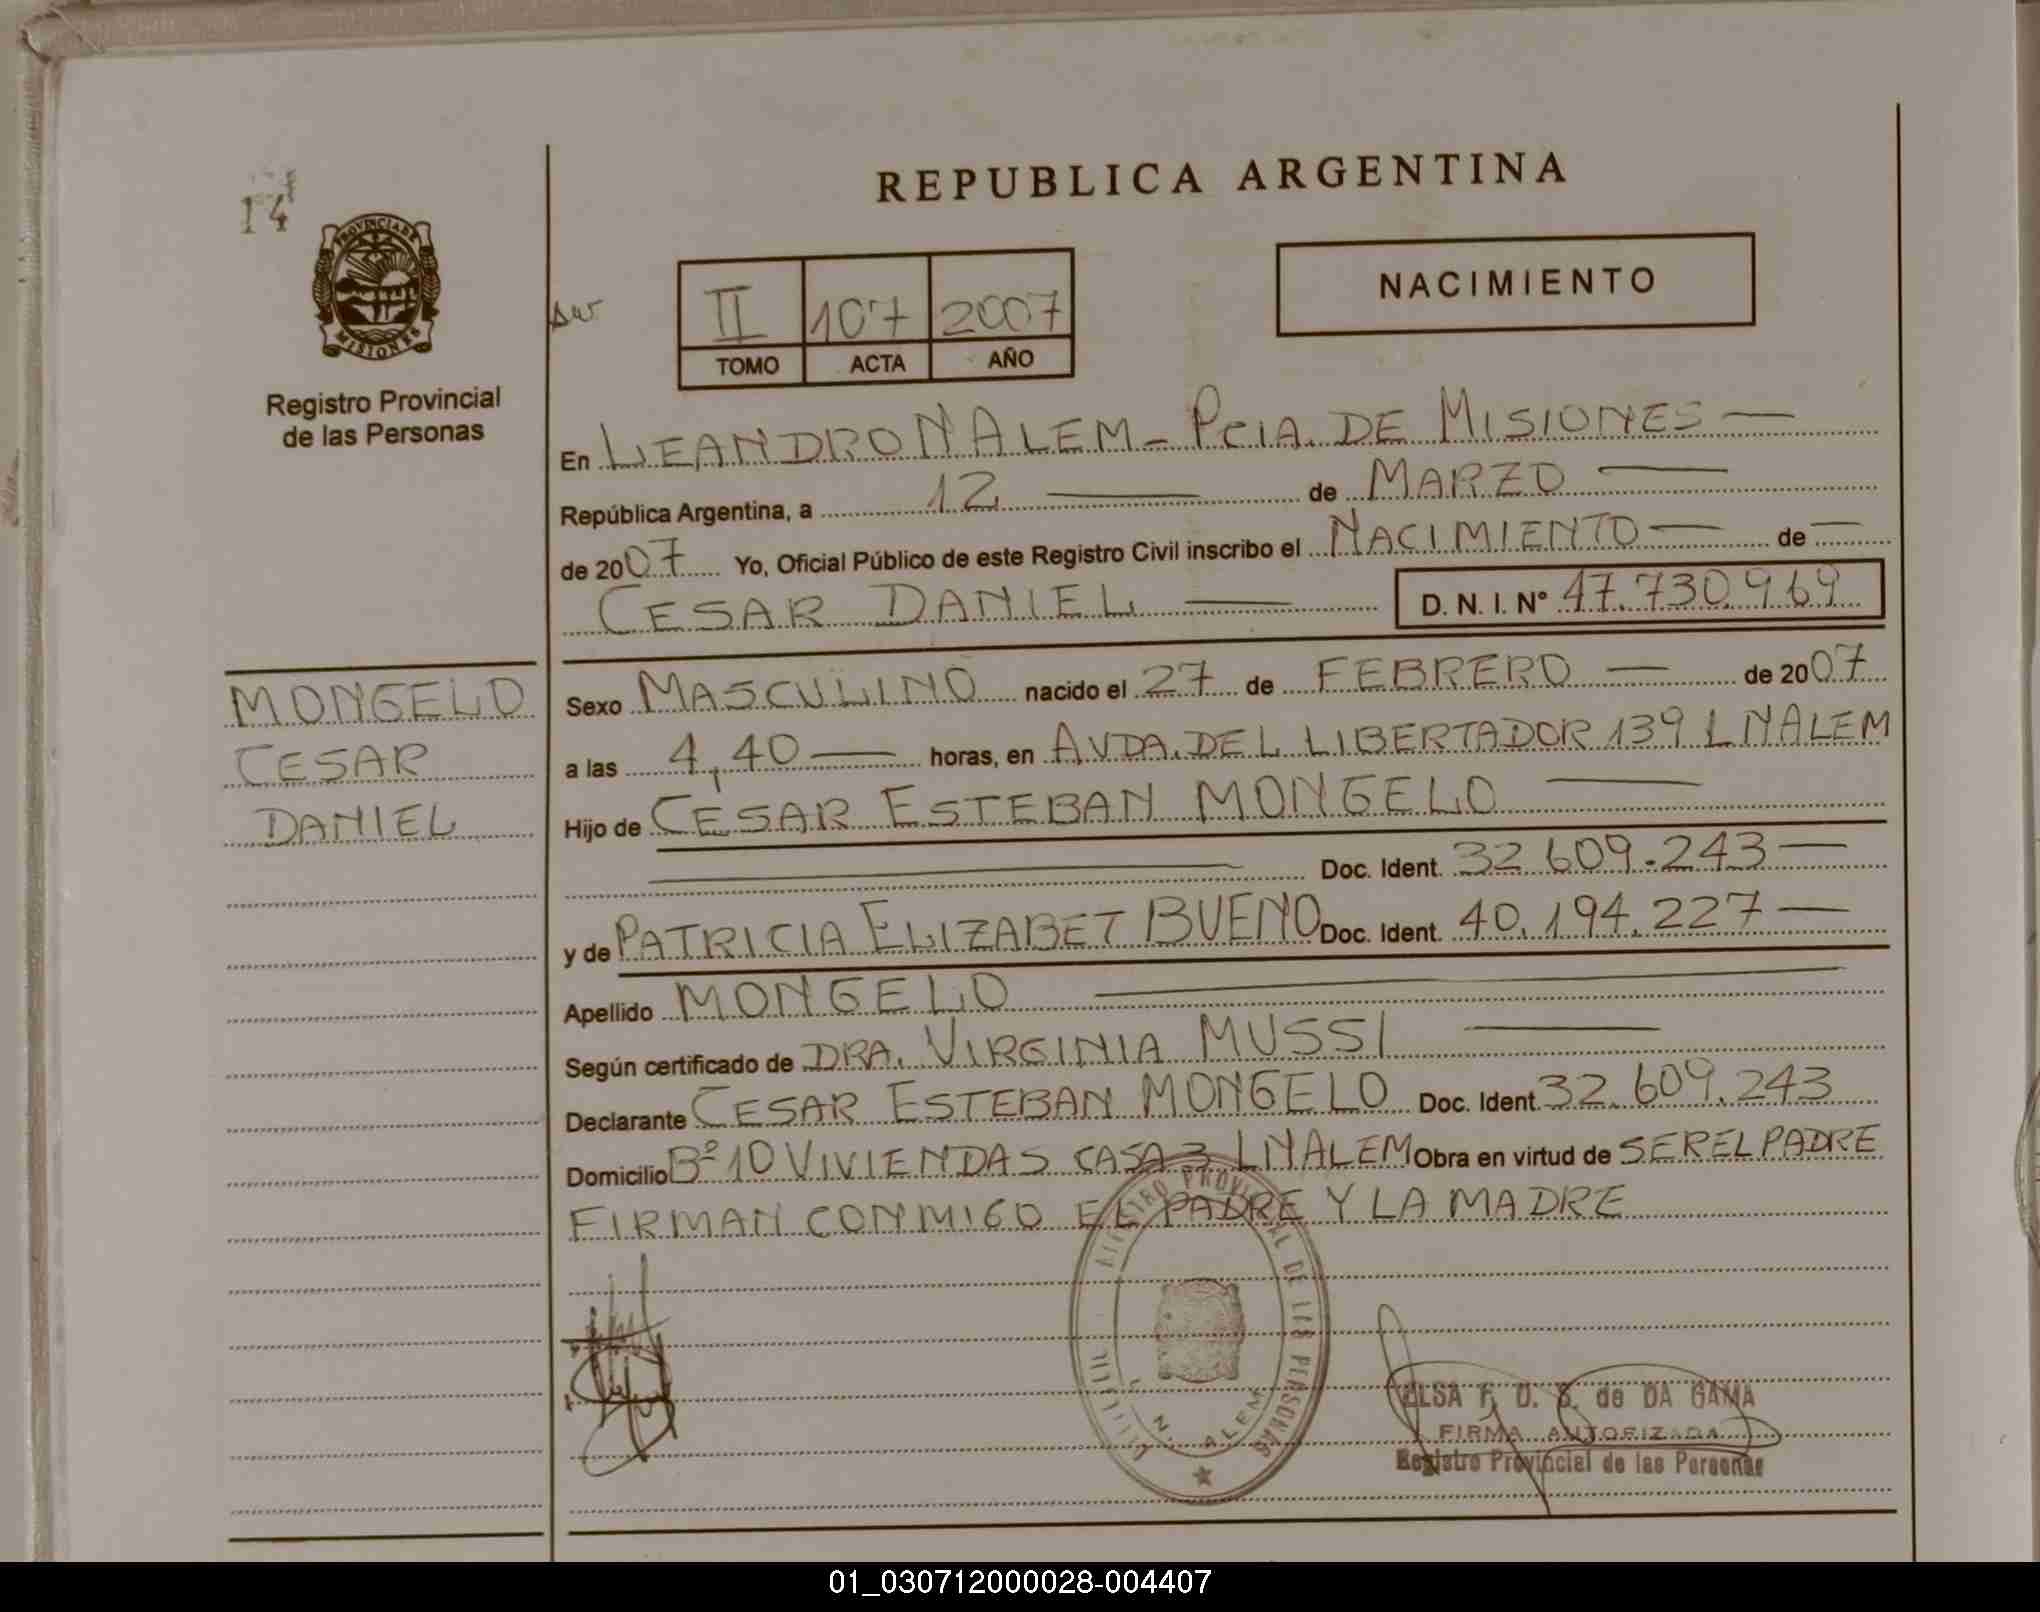 14
PROVINCIA DE
MISIONES
Registro Provincial
de las Personas
REPUBLICA ARGENTINA
II 107 2007
TOMO ACTA AÑO
NACIMIENTO
En LEANDRO N ALEM - PCIA. DE MISIONES —
República Argentina, a 12 — de MARZO —
de 2007 Yo, Oficial Público de este Registro Civil inscribo el NACIMIENTO — de —
CESAR DANIEL — D. N. I. Nº 47.730.969
MONGELO
CESAR
DANIEL
Sexo MASCULINO nacido el 27 de FEBRERO — de 2007
a las 4,40 — horas, en AVDA. DEL LIBERTADOR 139 L N ALEM
Hijo de CESAR ESTEBAN MONGELO —
Doc. Ident. 32.609.243 —
y de PATRICIA ELIZABET BUENO Doc. Ident. 40.194.227 —
Apellido MONGELO —
Según certificado de DRA. VIRGINIA MUSSI —
Declarante CESAR ESTEBAN MONGELO Doc. Ident. 32.609.243
Domicilio Bº 10 VIVIENDAS CASA 3 L N ALEM Obra en virtud de SER EL PADRE
FIRMAN CONMIGO EL PADRE Y LA MADRE
PROVINCIAL DE LAS PERSONAS
N. ALEM
ELSA F. D. S. de DA GAMA
FIRMA AUTORIZADA
Registro Provincial de las Personas
01_030712000028-004407